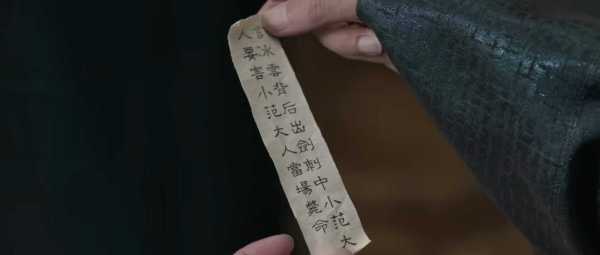 言冰雲背后出劍刺中小范大
人要害小范大人當場斃命